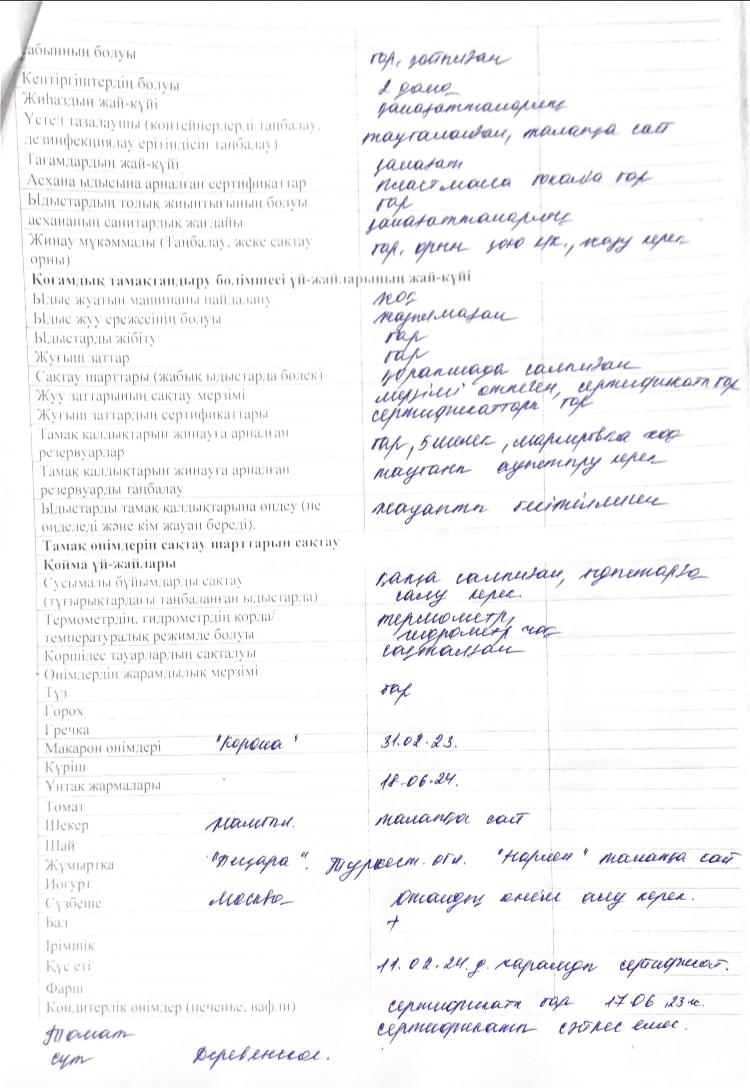 абынның болуы бар, ілінген
Кептіргіштердің болуы 2 дана
Жиһаздың жай-күйі қанағаттанарлық
Үстел тазалаушы (контейнерлерді таңбалау, таңбаланған, талапқа сай
дезинфекциялау ерітіндісін таңбалау)
Тағамдардың жай-күйі қанағат
Асхана ыдысына арналған сертификаттар пластмасса бар
Ыдыстардың толық жиынтығының болуы бар
асхананың санитарлық жағдайы қанағаттанарлық
Жинау мүкәммалы (Таңбалау, жеке сақтау бар, орны керек
орны)
Қоғамдық тамақтандыру бөлімшесі үй-жайларының жай-күйі
Ыдыс жуатын машинаны пайдалану жоқ
Ыдыс жуу ережесінің болуы жазылмаған
Ыдыстарды жібіту бар
Жуғыш заттар бар
Сақтау шарттары (жабық ыдыстарда бөлек) қорапшада салынған
Жуу заттарының сақтау мерзімі мерзімі өтпеген, сертификаты бар
Жуғыш заттардың сертификаттары сертификаттары бар
Тамақ қалдықтарын жинауға арналған бар, 5 шелек, маркировка жоқ
резервуарлар
Тамақ қалдықтарын жинауға арналған керек
резервуарды таңбалау
Ыдыстарды тамақ қалдықтарына өңдеу (не жауапты бекітілмеген
өңделеді және кім жауап береді).
Тамақ өнімдерін сақтау шарттарын сақтау
Қойма үй-жайлары
Сусымалы бұйымдарды сақтау қапқа салынған,
(тұғырықтардағы таңбаланған ыдыстарда) салу керек.
Термометрдің, гидрометрдің қорда/ термометр,
температуралық режимде болуы гидрометр жоқ
Көршілес тауарлардың сақталуы сақталған
Өнімдердің жарамдылық мерзімі
Тұз бар
Горох
Гречка
Макарон өнімдері "Корона" 31.02.23.
Күріш
Ұнтақ жармалары 18.06.24.
Томат
Шекер талапқа сай
Шай
Жұмыртқа Туркест. обл. талапқа сай
Йогурт
Сүзбеше Москва отандық өнім алу керек.
Бал +
Ірімшік
Құс еті 11.02.24.ж. жарамды сертификат.
Фарш
Кондитерлік өнімдер (печенье, вафли) сертификаты бар 17.06.23 ж.
Томат сертификаты сәйкес емес.
сүт Деревенское.